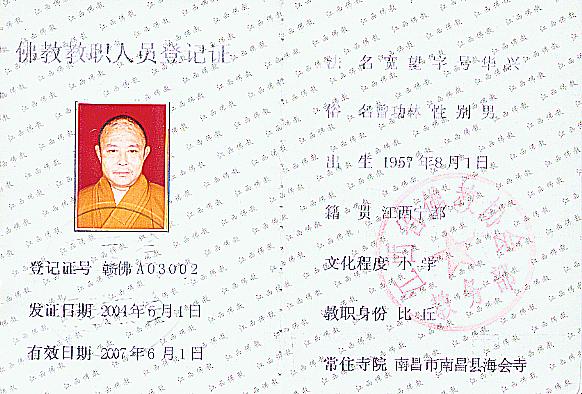 佛教教职人员登记证
登记证号 赣佛A03002
发证日期 2004年6月1日
有效日期 2007年6月1日
法 名 宽望 字号 华兴
俗 名 曾功林 性别 男
出 生 1957年8月1日
籍 贯 江西宁都
文化程度 小学
教职身份 比丘
常住寺院 南昌市南昌县海会寺
江西佛教
教务部